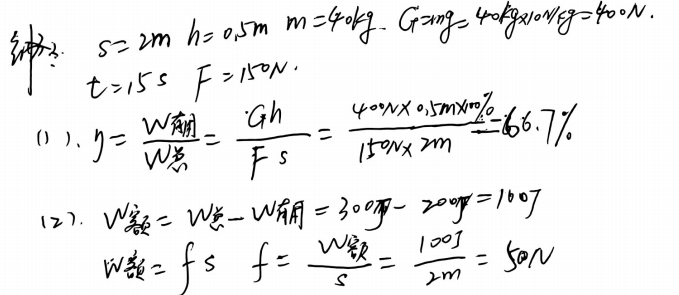 解: s=2m h=0.5m m=40kg G=mg=40kg×10N/kg=400N.
t=15s F=150N.
(1). η=W有用/W总=Gh/Fs=400N×0.5m×100%/150N×2m=66.7%
(2). W额=W总-W有用=300J-200J=100J
W额=fs f=W额/s=100J/2m=50N